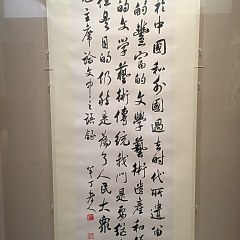 於中國和外國過去時代所遺留
的豐富的文學藝術遺產和優
的文學藝術傳統我們是要繼
但是目的仍然是為了人民大眾
主席論文中之語錄 半丁老人